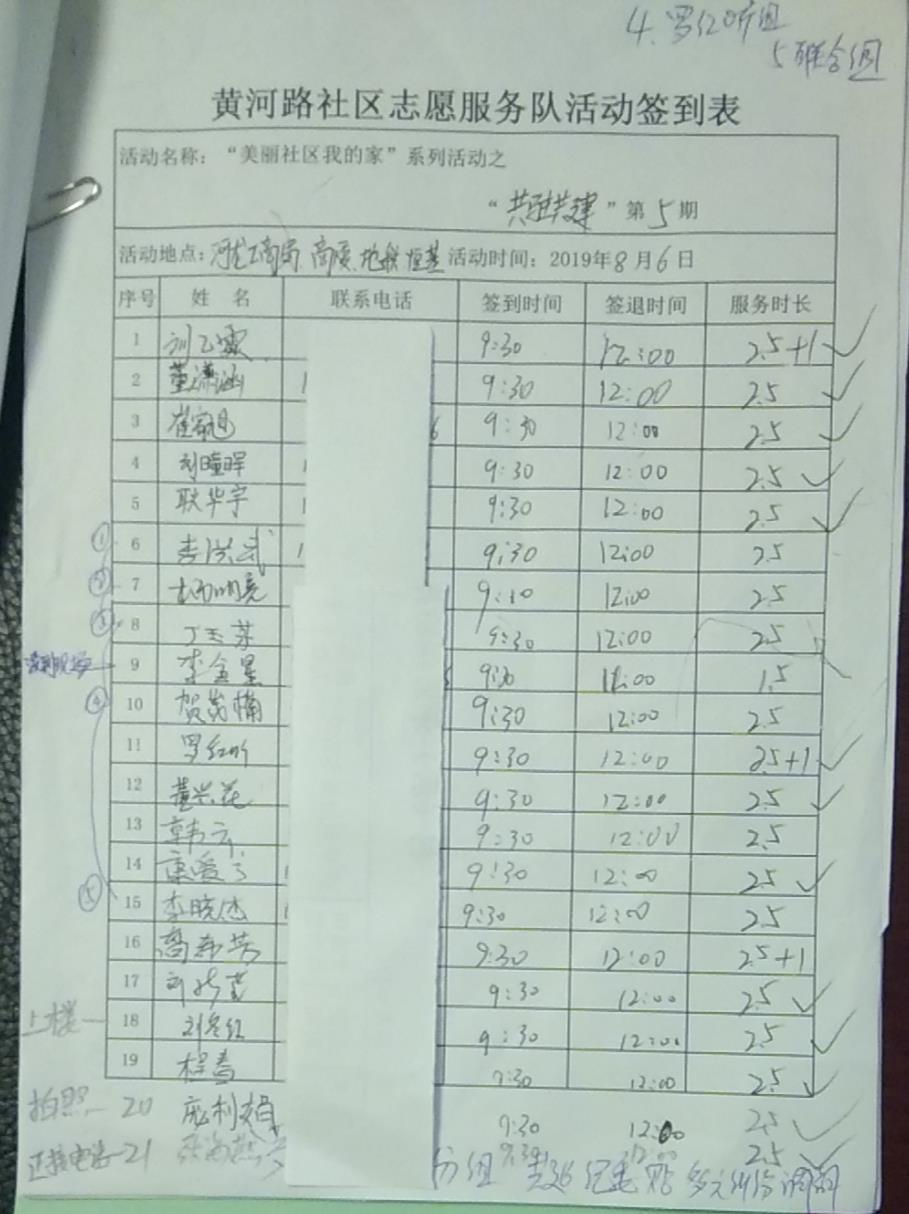 4.罗红昕组
5 联合组
黄河路社区志愿服务队活动签到表
活动名称：“美丽社区我的家”系列活动之
“共驻共建”第5期
活动地点： 工商局、商厦、地税 活动时间：2019年8月6日
序号 姓 名 联系电话 签到时间 签退时间 服务时长
1 刘乙霖 9:30 12:00 2.5+1
2 董潇涵 9:30 12:00 2.5
3 崔家旭 6 9:30 12:00 2.5
4 刘曈晖 1 9:30 12:00 2.5
5 耿华宇 1 9:30 12:00 2.5
① 6 李洪武 1 9:30 12:00 2.5
② 7 明亮 9:10 12:00 2.5
③ 8 丁玉萍 9:30 12:00 2.5
9 李金星 9:30 11:00 1.5
④ 10 贺 楠 9:30 12:00 2.5
11 罗红昕 9:30 12:00 2.5+1
12 董兴花 9:30 12:00 2.5
13 韩云 9:30 12:00 2.5
14 康爱 9:30 12:00 2.5
⑤ 15 李晓杰 9:30 12:00 2.5
16 高 芳 9:30 12:00 2.5+1
17 刘 莹 9:30 12:00 2.5
上楼 18 刘冬红 9:30 12:00 2.5
19 程春 9:30 12:00 2.5
拍照 20 庞利娟 9:30 12:00 2.5
电话 21 张海燕 9:30 12:00 2.5
分组